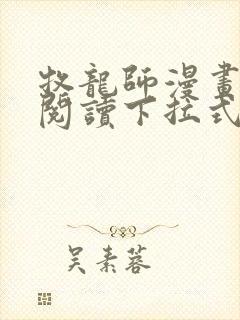 牧龍師漫畫
閱讀下拉式
吳素蓉